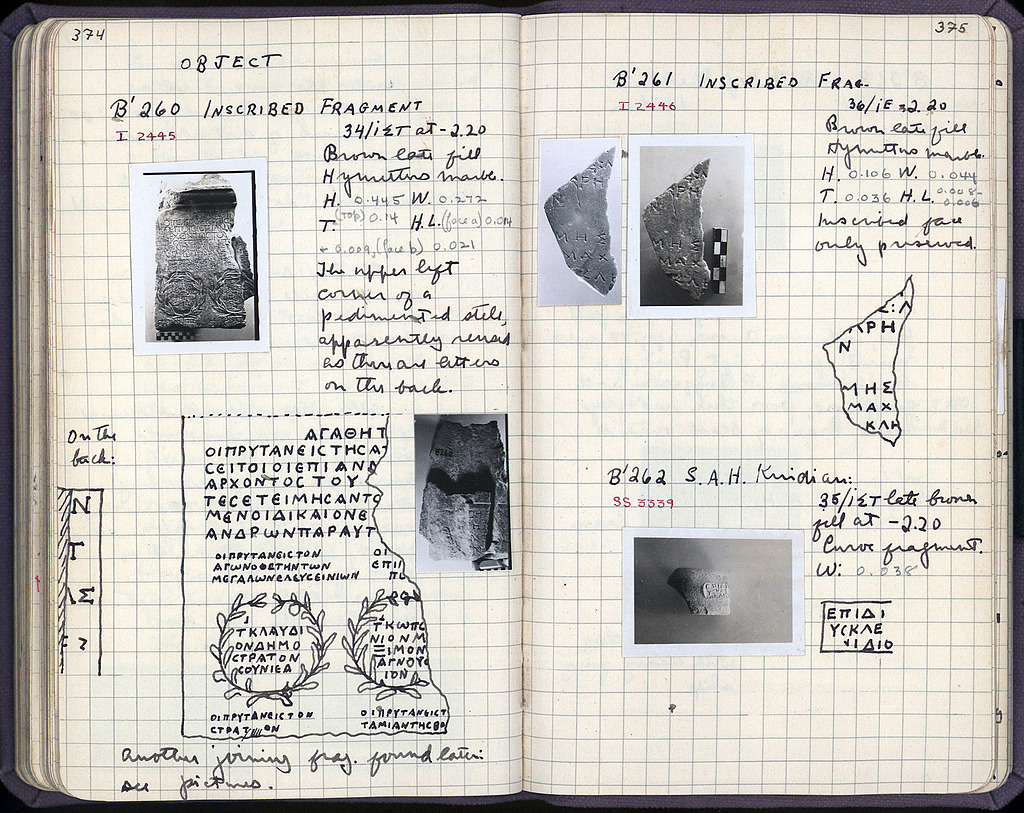 374
OBJECT
B'260 INSCRIBED FRAGMENT
I 2445
34/ΙΣΤ at -2.20
Brown late fill
Hymettus marble.
H. 0.445 W. 0.272
T. (top) 0.14 H.L. (face a) 0.014
- 0.009, (face b) 0.021
The upper left
corner of a
pedimented stele,
apparently reused
as there are letters
on the back.
On the
back:
Ν
Τ
ΛΣ
ΑΓΑΘΗΤ
ΟΙΠΡΥΤΑΝΕΙϹΤΗϹΑ
ϹΕΙΤΟΙΟΙΕΠΙΑΝΔ
ΑΡΧΟΝΤΟϹΤΟΥ
ΤΕϹΕΤΕΙΜΗϹΑΝΤΟ
ΜΕΝΟΙΔΙΚΑΙΟΝΕ
ΑΝΔΡΩΝΠΑΡΑΥΤ
ΟΙΠΡΥΤΑΝΕΙϹΤΟΝ ΟΙ
ΑΓΩΝΟΘΕΤΗΝΤΩΝ ΕΠΙ
ΜΕΓΑΛΩΝΕΛΕΥϹΕΙΝΙΩΝ ΠΕ
ΤΚΛΑΥΔΙ
ΟΝΔΗΜΟ
ϹΤΡΑΤΟΝ
ϹΟΥΝΙΕΑ
ΤΚΩΠΩ
ΝΙΟΝΜ
ΞΙΜΟΝ
ΑΓΝΟΥϹ
ΙΟΝ
ΟΙΠΡΥΤΑΝΕΙϹΤΟΝ ΟΙΠΡΥΤΑΝΕΙϹΤ
ϹΤΡΑΤ ΟΝ ΤΑΜΙΑΝΤΗϹΒΟ
Another joining frag. found later:
see pictures.
375
B'261 INSCRIBED FRAG.
I 2446
36/ΙΕ -2.20
Brown late fill
Hymettus marble.
H. 0.106 W. 0.044
T. 0.036 H.L. 0.008-
0.006
Inscribed face
only preserved.
Σ:Λ
ΑΡΗ
Ν
ΜΗΣ
ΜΑΧ
ΚΛΗ
B'262 S.A.H. Knidian:
SS 3339
35/ΙΣΤ late brown
fill at -2.20
Curve fragment.
W: 0.038
ΕΠΙΔΙ
ΥΣΚΛΕ
ΝΙΔΙΟ